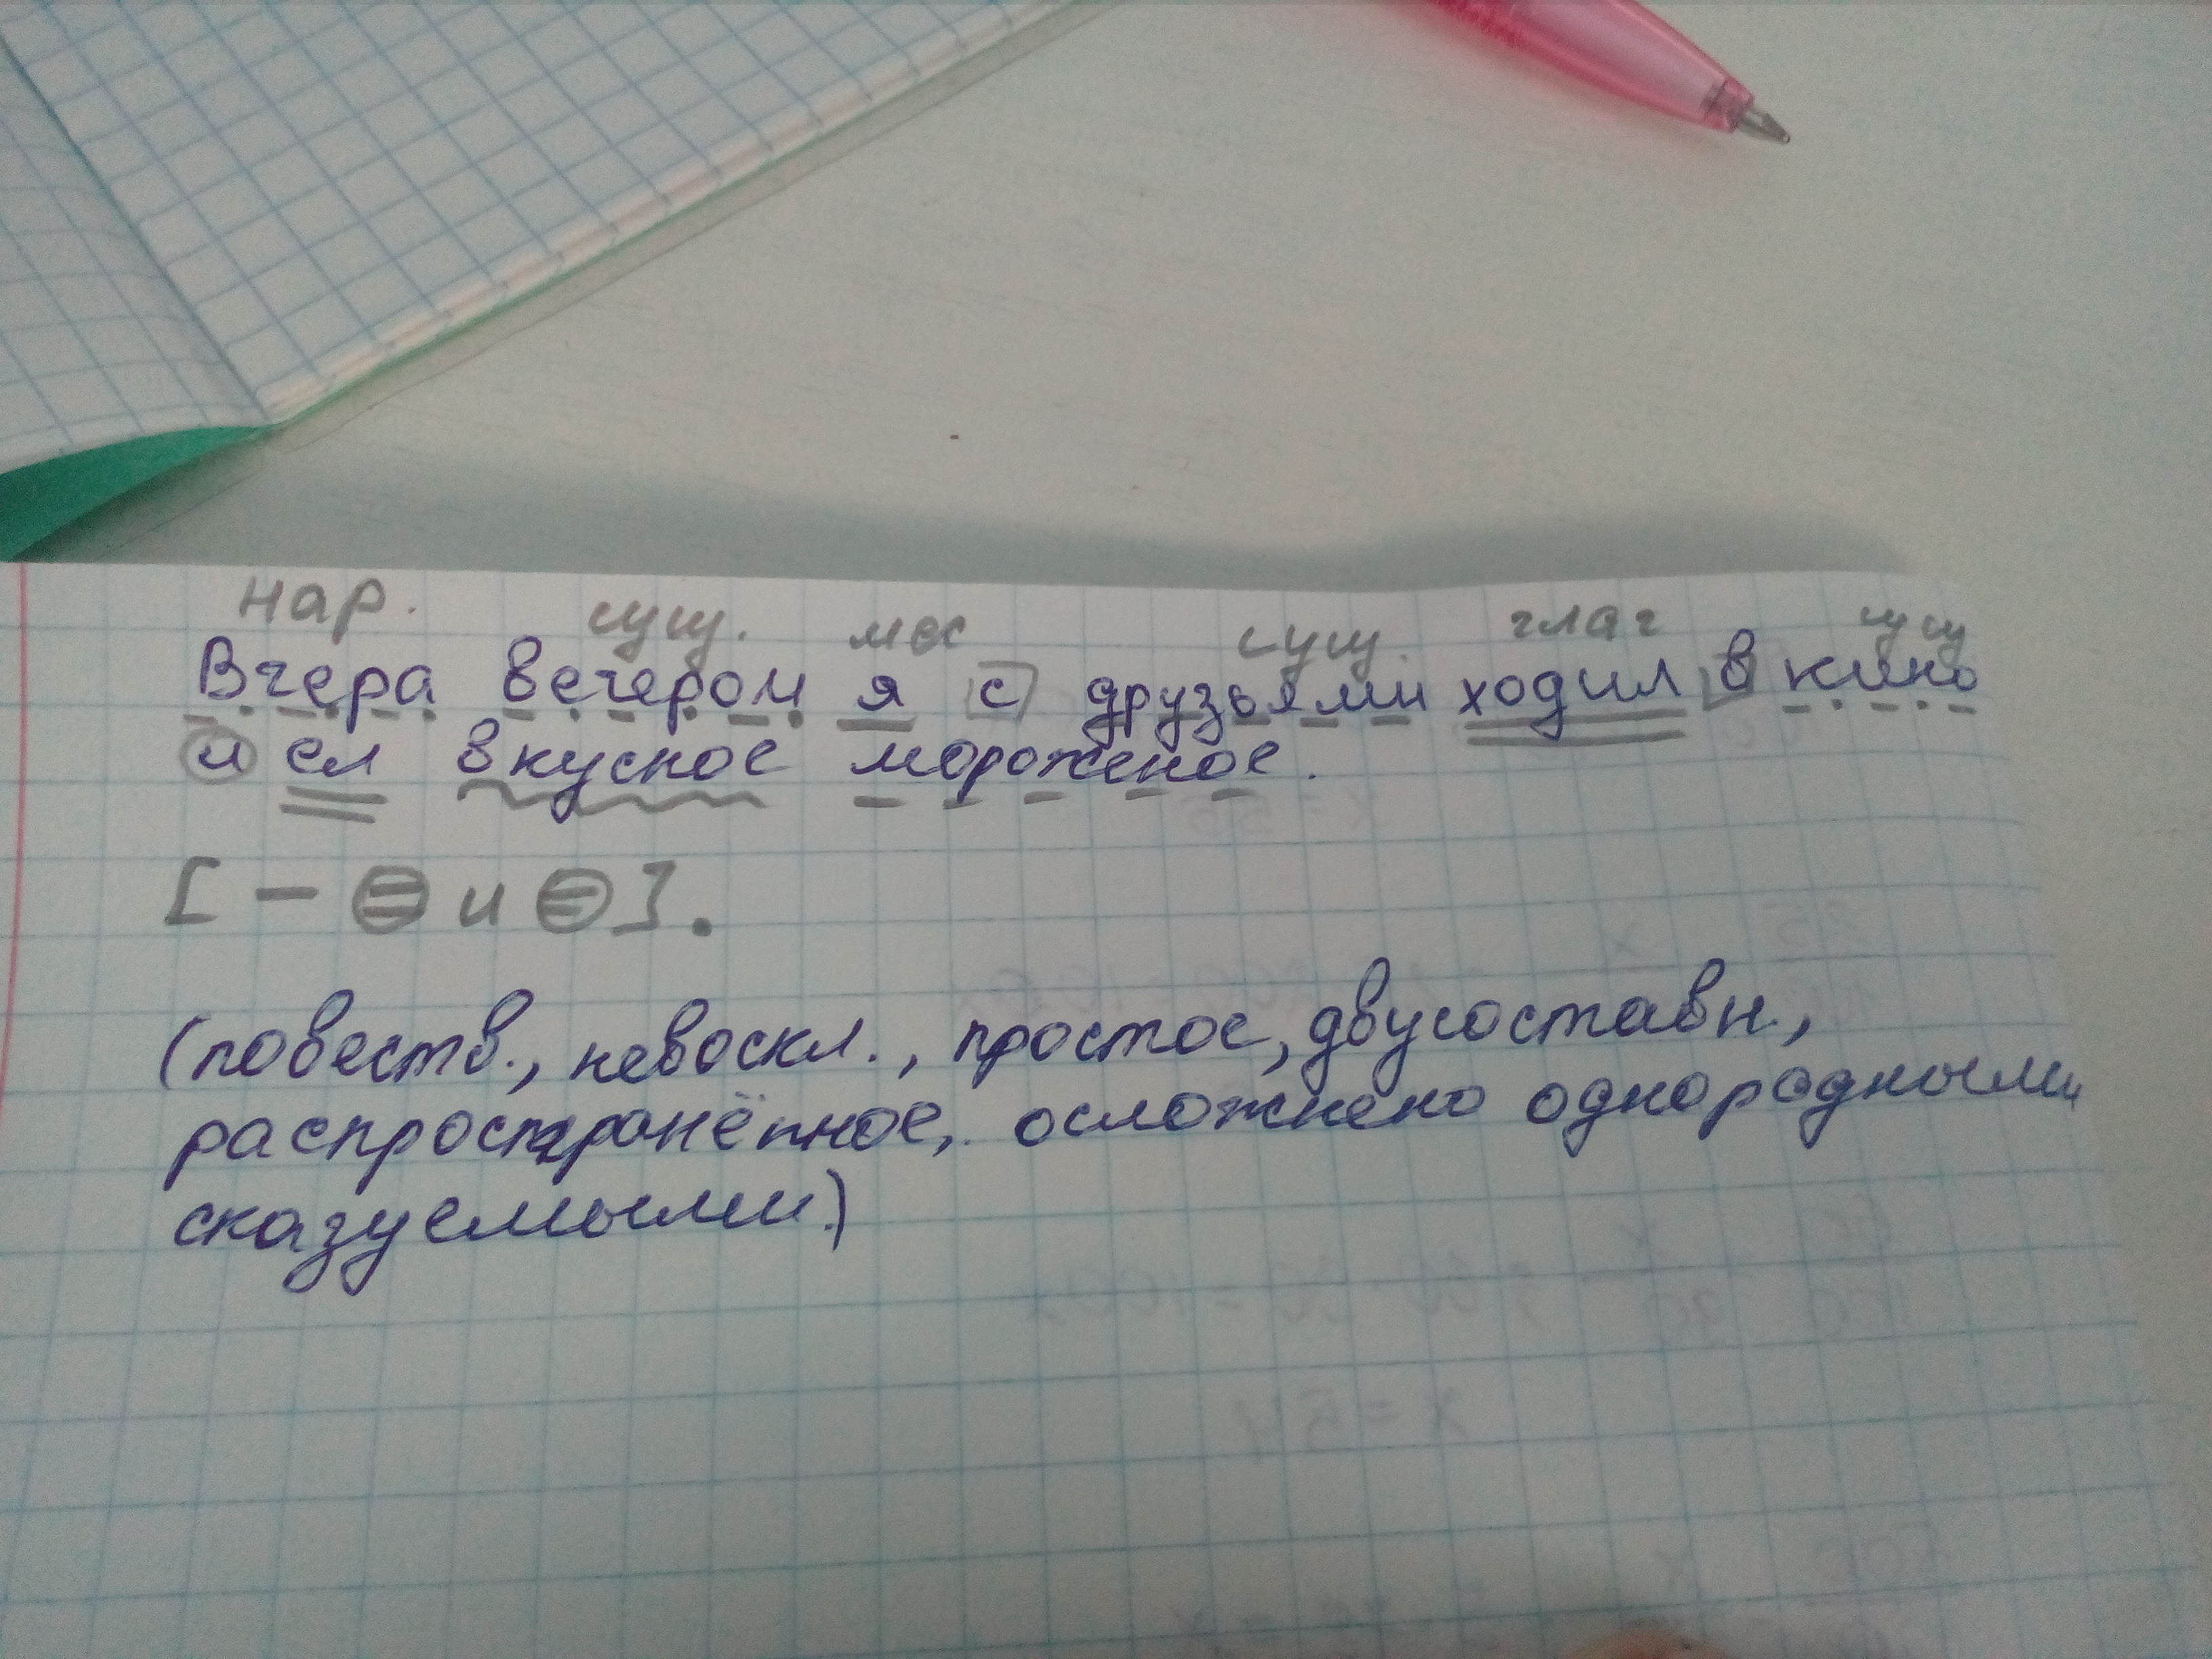 нар. сущ. мес сущ. глаг сущ
Вчера вечером я с друзьями ходил в кино
и ел вкусное мороженое.
[ – = и = ].
(повеств., невоскл., простое, двусоставн.,
распространённое, осложнено однородными
сказуемыми.)